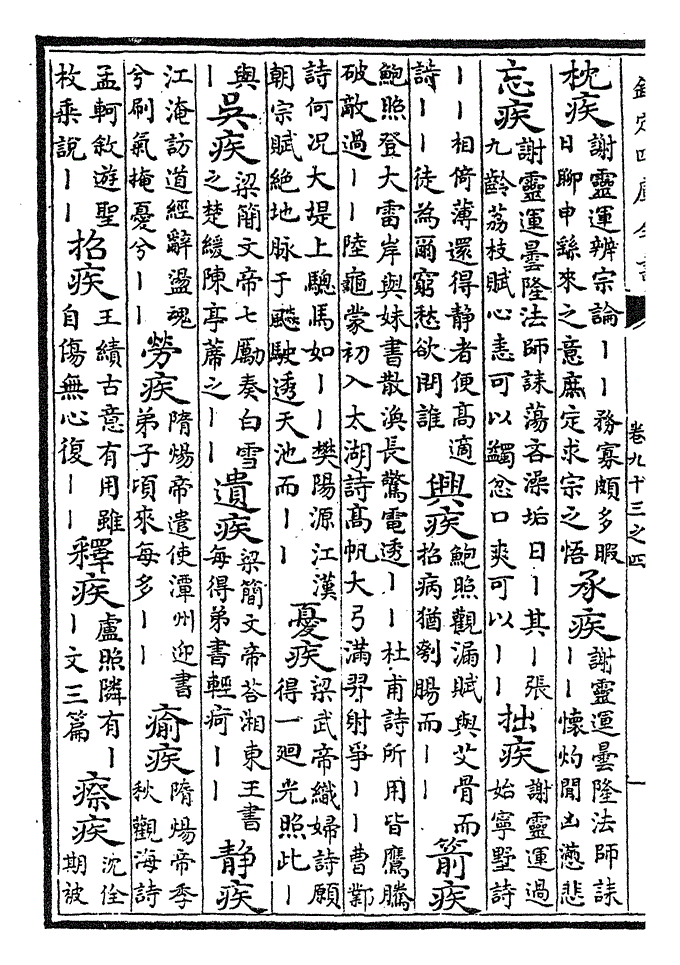 欽定四庫全書 卷九十三之四 一
枕疾 謝靈運辨宗論｜｜務寡頗多暇日聊申繇來之意庶定求宗之悟 承疾 謝靈運曇隆法師誄｜｜懷灼聞凶懣悲
忘疾 謝靈運曇隆法師誄蕩吝澡垢日｜其｜張九齡荔枝賦心恚可以蠲忿口爽可以｜｜ 拙疾 謝靈運過始寧墅詩
｜｜相倚薄還得静者便高適詩｜｜徒為爾窮愁欲問誰 興疾 鮑照觀漏賦與艾骨而招病猶刳腸而｜｜ 箭疾
鮑照登大雷岸與妹書散渙長驚電透｜｜杜甫詩所用皆鷹騰破敵過｜｜陸龜蒙初入太湖詩高帆大弓滿羿射爭｜｜曹鄴
詩何况大堤上驄馬如｜｜樊陽源江漢朝宗賦絶地脉于飈駛透天池而｜｜ 憂疾 梁武帝織婦詩願得一廻光照此｜
與｜ 吳疾 梁簡文帝七勵奏白雪之楚緩陳亭蓆之｜｜ 遺疾 梁簡文帝荅湘東王書每得弟書輕痾｜｜ 静疾
江淹訪道經辭盪魂兮刷氣掩憂兮｜｜ 勞疾 隋煬帝遣使潭州迎書弟子項來每多｜｜ 瘉疾 隋煬帝季秋觀海詩
孟軻敘遊聖枚乘説｜｜ 招疾 王績古意有用雖自傷無心復｜｜ 釋疾 盧照隣有｜｜文三篇 瘵疾 沈佺期被